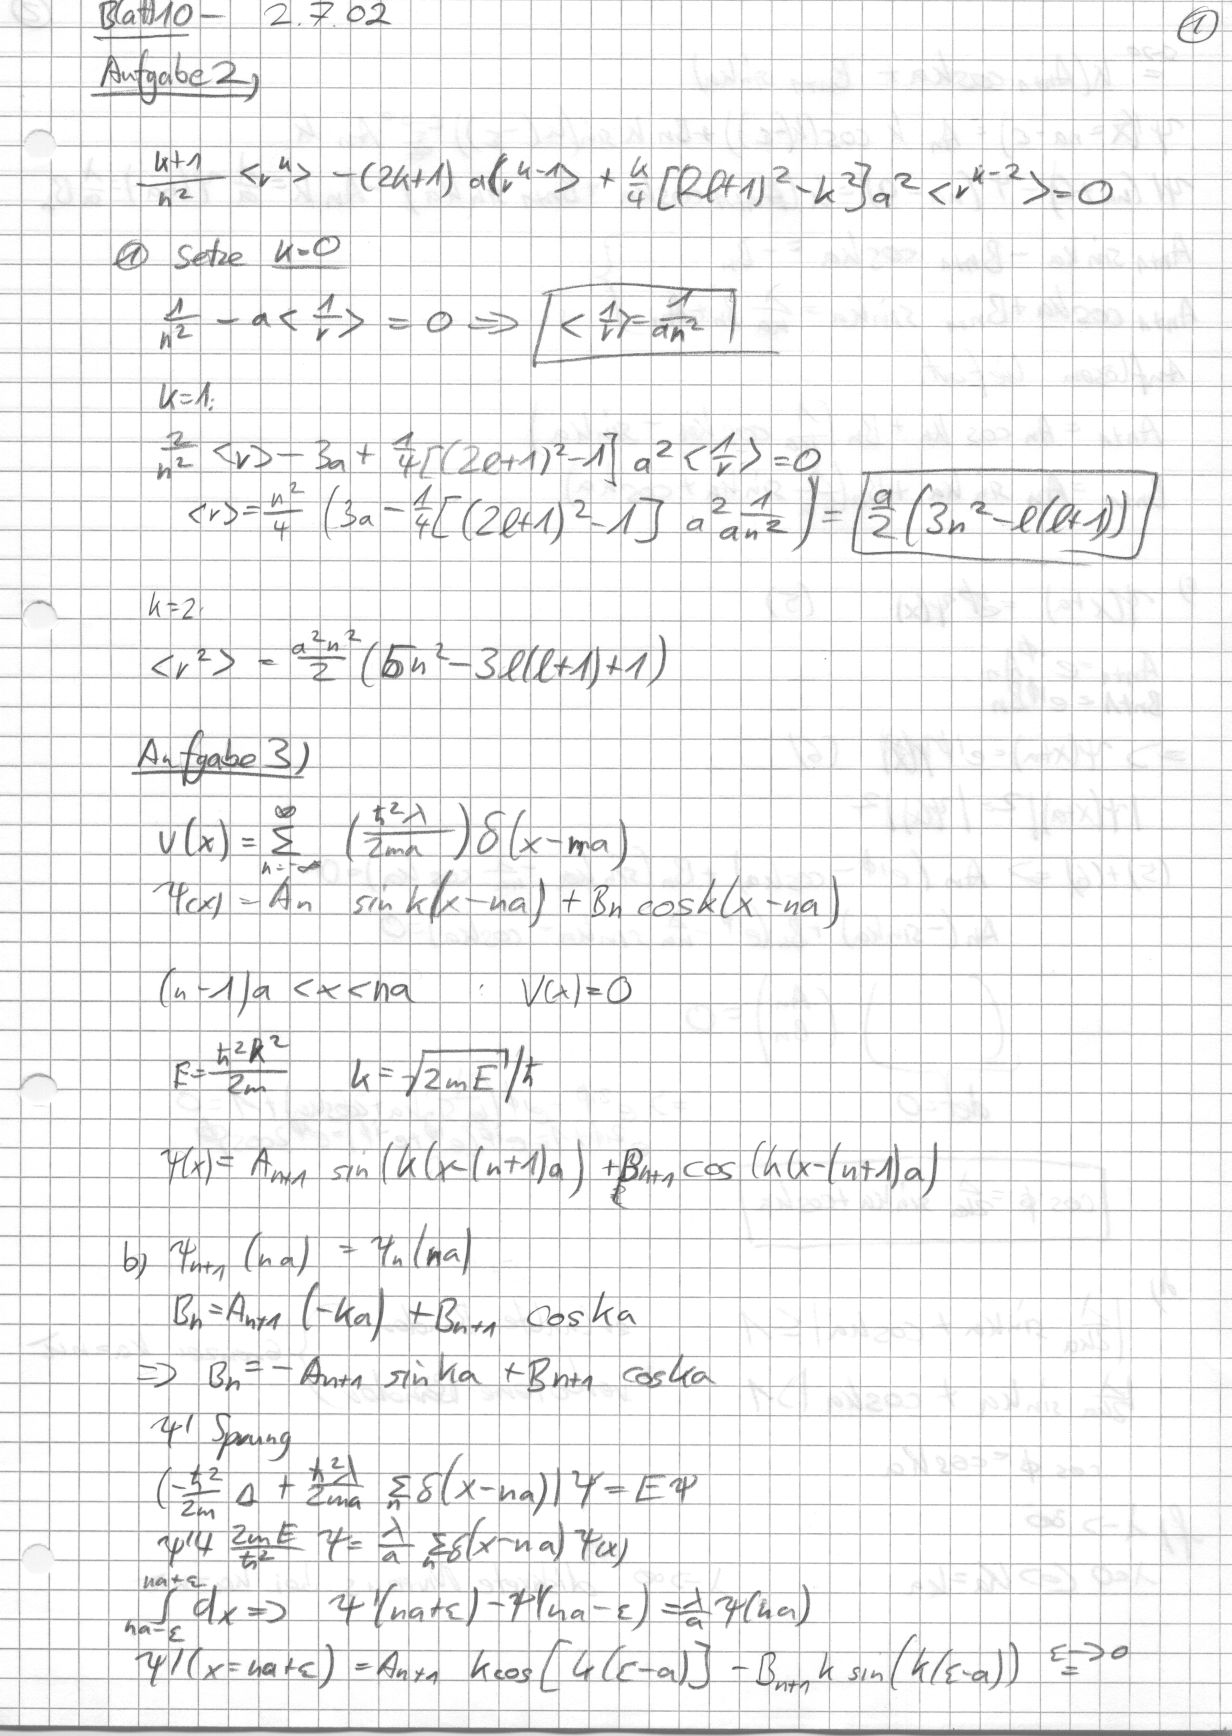 Blatt 10 - 2.7.02
①
Aufgabe 2)
(k+1)/n² <r^k> - (2k+1) a <r^(k-1)> + k/4 [(2l+1)² - k²] a² <r^(k-2)> = 0
① Setze k=0
1/n² - a < 1/r > = 0 => < 1/r > = 1/(an²)
k=1:
2/n² <r> - 3a + 1/4 [(2l+1)² - 1] a² < 1/r > = 0
<r> = n²/4 (3a - 1/4 [(2l+1)² - 1] a² 1/(an²)) = a/2 (3n² - l(l+1))
k=2:
<r²> = a²n²/2 (5n² - 3l(l+1) + 1)
Aufgabe 3)
V(x) = Σ_{n=-∞}^{∞} (ħ²λ/2ma) δ(x-na)
Ψ(x) = An sin k(x-na) + Bn cos k(x-na)
(n-1)a < x < na : V(x) = 0
E = ħ²k²/2m k = √(2mE)/ħ
Ψ(x) = A_{n+1} sin(k(x-(n+1)a) + B_{n+1} cos(k(x-(n+1)a)
b) Ψ_{n+1}(na) = Ψ_n(na)
Bn = A_{n+1} (-ka) + B_{n+1} cos ka
=> Bn = - A_{n+1} sin ka + B_{n+1} cos ka
Ψ' Sprung
(-ħ²/2m Δ + ħ²λ/2ma Σ_n δ(x-na)) Ψ = EΨ
Ψ'' + 2mE/ħ² Ψ = λ/a Σ_n δ(x-na) Ψ(x)
∫_{na-ε}^{na+ε} dx => Ψ'(na+ε) - Ψ'(na-ε) = λ/a Ψ(na)
Ψ'(x=na+ε) = A_{n+1} k cos[k(ε-a)] - B_{n+1} k sin(k(ε-a)) ε->0 =